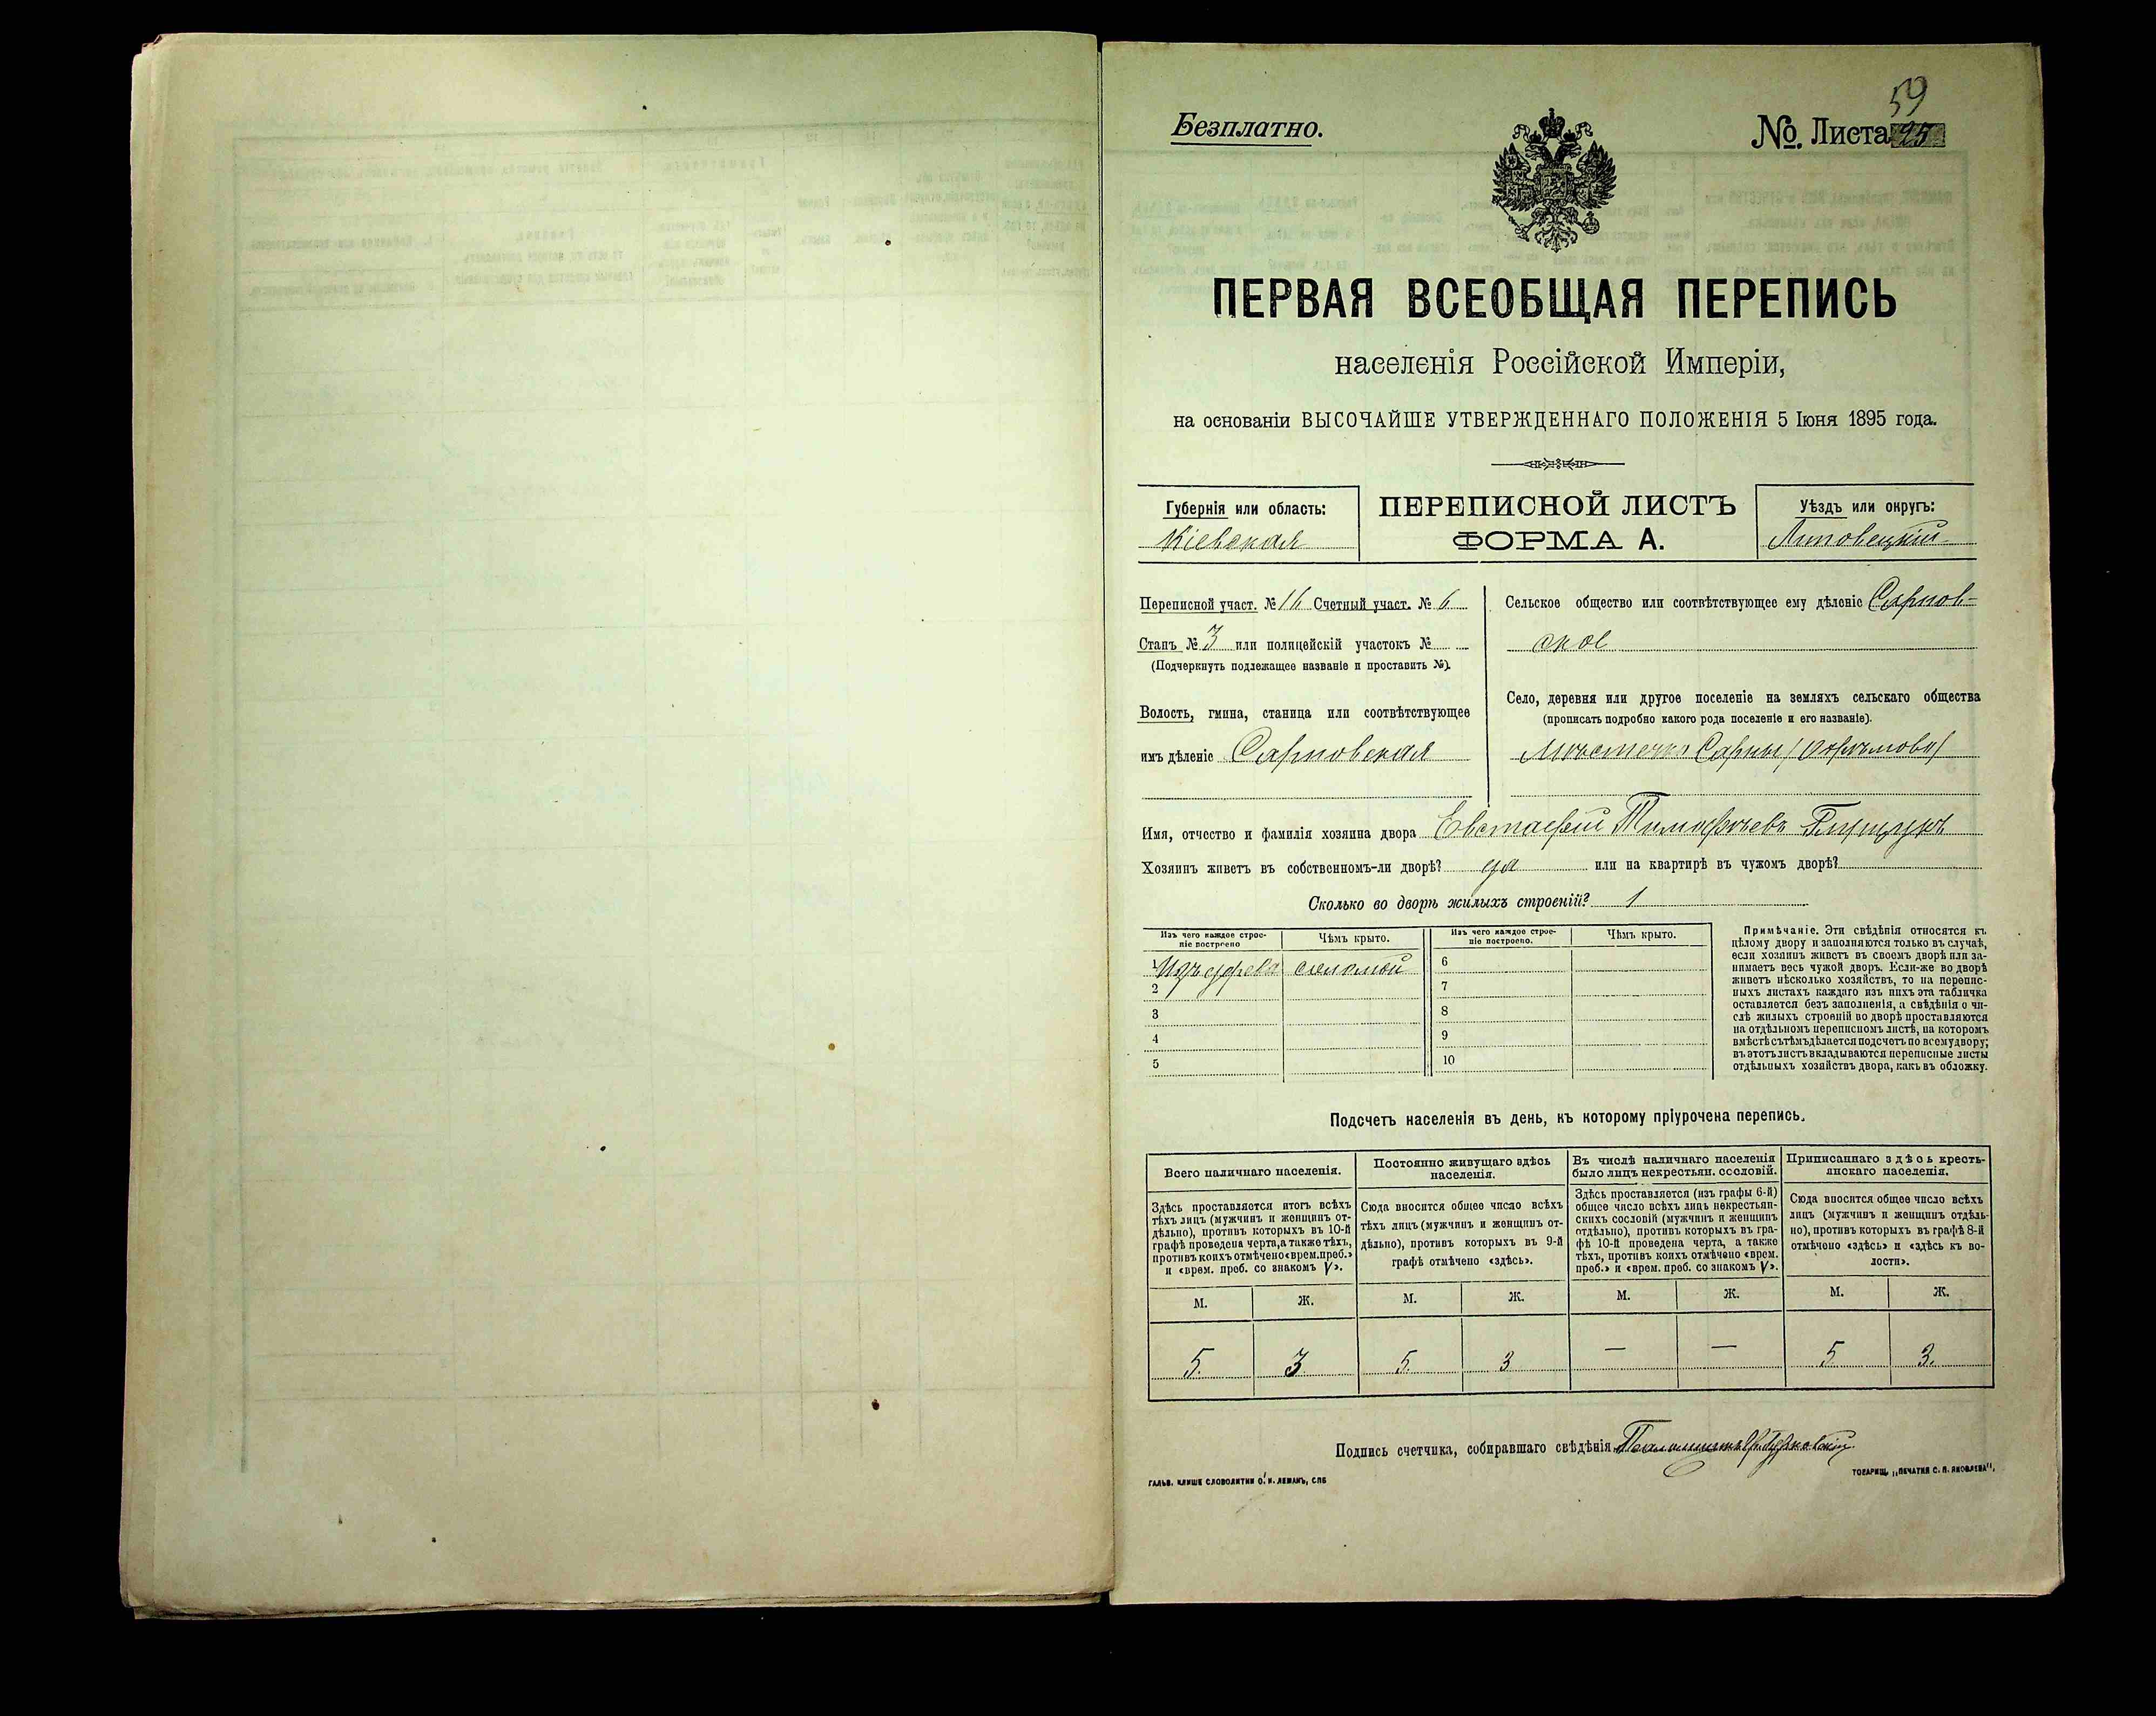 59
Безплатно.
№. Листа 95
ПЕРВАЯ ВСЕОБЩАЯ ПЕРЕПИСЬ
населенія Россійской Имперіи,
на основаніи ВЫСОЧАЙШЕ УТВЕРЖДЕННАГО ПОЛОЖЕНІЯ 5 Іюня 1895 года.
Губернія или область:
Кіевская
ПЕРЕПИСНОЙ ЛИСТЪ
ФОРМА А.
Уѣздъ или округъ:
Липовецкій
Переписной участ. № 16 Счетный участ. № 6
Станъ № 3 или полицейскій участокъ №
(Подчеркнуть подлежащее названіе и проставить №).
Волость, гмина, станица или соотвѣтствующее
имъ дѣленіе Сарновская
Сельское общество или соотвѣтствующее ему дѣленіе Сарнов-
ское
Село, деревня или другое поселеніе на земляхъ сельскаго общества
(прописать подробно какого рода поселеніе и его названіе).
Мѣстечко Сарны
Имя, отчество и фамилія хозяина двора Евстафій Тимофѣевъ
Хозяинъ живетъ въ собственномъ-ли дворѣ? да или на квартирѣ въ чужомъ дворѣ?
Сколько во дворѣ жилыхъ строеній? 1
Изъ чего каждое строе-
ніе построено
Чѣмъ крыто.
Изъ чего каждое строе-
ніе построено.
Чѣмъ крыто.
1 Изъ дерева соломой
2
3
4
5
6
7
8
9
10
Примѣчаніе. Эти свѣдѣнія относятся къ
цѣлому двору и заполняются только въ случаѣ,
если хозяинъ живетъ въ своемъ дворѣ или за-
нимаетъ весь чужой дворъ. Если-же во дворѣ
живетъ нѣсколько хозяйствъ, то на перепис-
ныхъ листахъ каждаго изъ нихъ эта табличка
оставляется безъ заполненія, а свѣдѣнія о чи-
слѣ жилыхъ строеній во дворѣ проставляются
на отдѣльномъ переписномъ листѣ, на которомъ
вмѣстѣ съ тѣмъ дѣлается подсчетъ по всему двору;
въ этотъ листъ вкладываются переписные листы
отдѣльныхъ хозяйствъ двора, какъ въ обложку.
Подсчетъ населенія въ день, къ которому пріурочена перепись.
Всего наличнаго населенія.
Здѣсь проставляется итогъ всѣхъ
тѣхъ лицъ (мужчинъ и женщинъ от-
дѣльно), противъ которыхъ въ 10-й
графѣ проведена черта, а также тѣхъ,
противъ коихъ отмѣчено «врем. преб.»
и «врем. преб. со знакомъ V».
Постоянно живущаго здѣсь
населенія.
Сюда вносится общее число всѣхъ
тѣхъ лицъ (мужчинъ и женщинъ от-
дѣльно), противъ которыхъ въ 9-й
графѣ отмѣчено «здѣсь».
Въ числѣ наличнаго населенія
было лицъ некрестьян. сословій.
Здѣсь проставляется (изъ графы 6-й)
общее число всѣхъ лицъ некрестьян-
скихъ сословій (мужчинъ и женщинъ
отдѣльно), противъ которыхъ въ гра-
фѣ 10-й проведена черта, а также
тѣхъ, противъ коихъ отмѣчено «врем.
преб.» и «врем. преб. со знакомъ V».
Приписаннаго здѣсь кресть-
янскаго населенія.
Сюда вносится общее число всѣхъ
лицъ (мужчинъ и женщинъ отдѣль-
но), противъ которыхъ въ графѣ 8-й
отмѣчено «здѣсь» и «здѣсь къ во-
лости».
М. Ж. М. Ж. М. Ж. М. Ж.
5. 3 5. 3 — — 5 3.
Подпись счетчика, собиравшаго свѣдѣнія
ГАЛЬВ. КЛИШЕ СЛОВОЛИТНИ О. И. ЛЕМАНЪ, СПБ
ТОВАРИЩ. „ПЕЧАТНЯ С. П. ЯКОВЛЕВА",